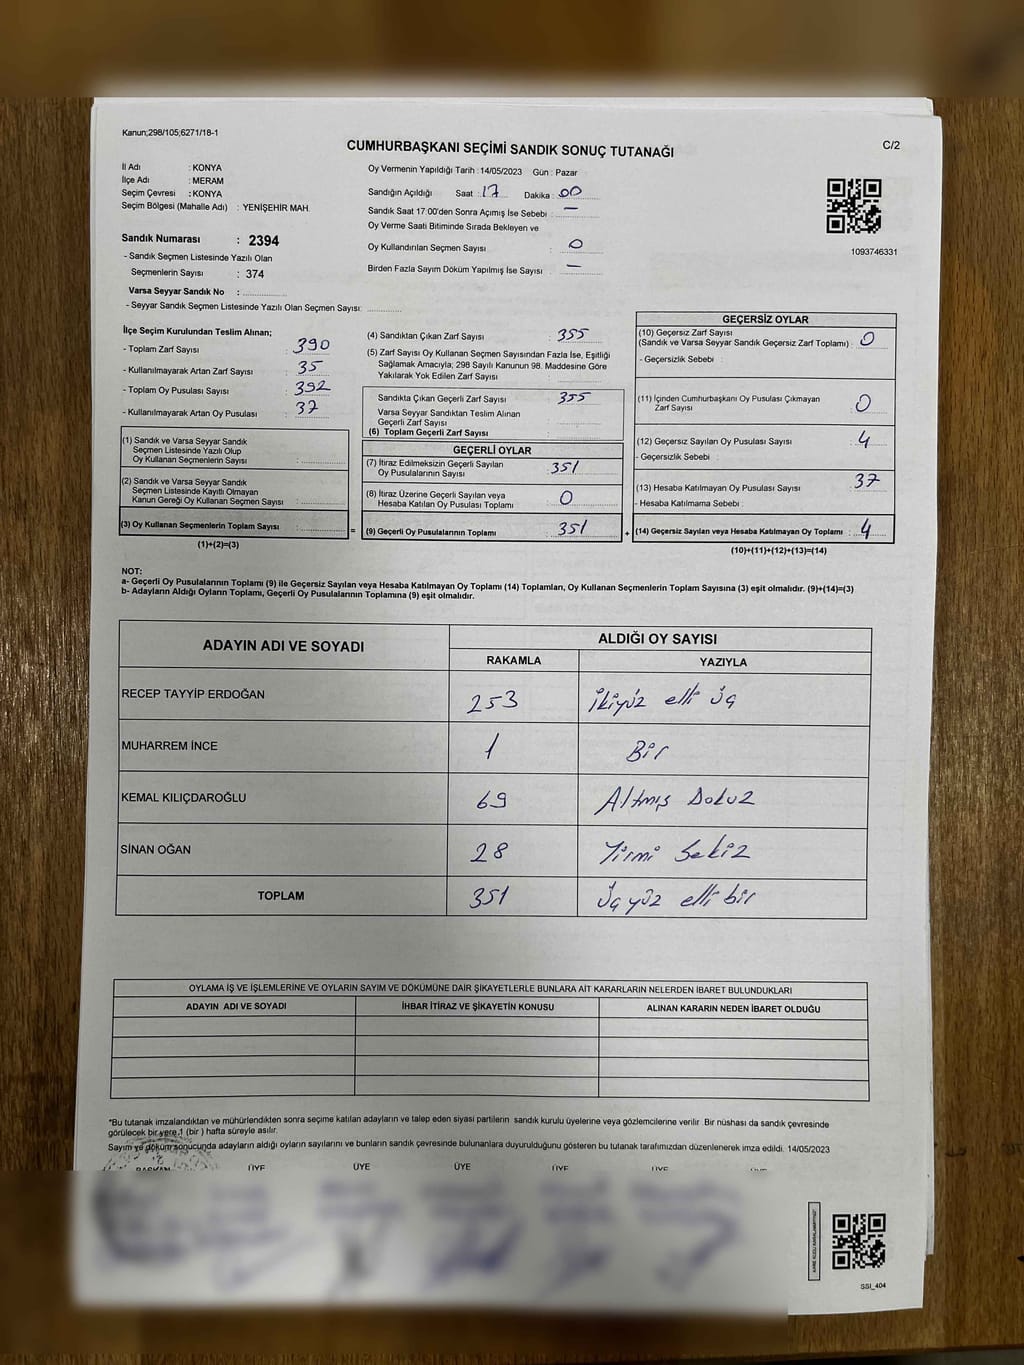 Kanun;298/105;6271/18-1
CUMHURBAŞKANI SEÇİMİ SANDIK SONUÇ TUTANAĞI
C/2
İl Adı : KONYA
İlçe Adı : MERAM
Seçim Çevresi : KONYA
Seçim Bölgesi (Mahalle Adı) : YENİŞEHİR MAH.
Sandık Numarası : 2394
- Sandık Seçmen Listesinde Yazılı Olan
Seçmenlerin Sayısı : 374
Varsa Seyyar Sandık No :
- Seyyar Sandık Seçmen Listesinde Yazılı Olan Seçmen Sayısı:
Oy Vermenin Yapıldığı Tarih :14/05/2023 Gün : Pazar
Sandığın Açıldığı Saat : 17 Dakika : 00
Sandık Saat 17:00'den Sonra Açımış İse Sebebi : —
Oy Verme Saati Bitiminde Sırada Bekleyen ve
Oy Kullandırılan Seçmen Sayısı : 0
Birden Fazla Sayım Döküm Yapılmış İse Sayısı : —
1093746331
İlçe Seçim Kurulundan Teslim Alınan;
- Toplam Zarf Sayısı : 390
- Kullanılmayarak Artan Zarf Sayısı : 35
- Toplam Oy Pusulası Sayısı : 392
- Kullanılmayarak Artan Oy Pusulası : 37
(1) Sandık ve Varsa Seyyar Sandık
Seçmen Listesinde Yazılı Olup
Oy Kullanan Seçmenlerin Sayısı :
(2) Sandık ve Varsa Seyyar Sandık
Seçmen Listesinde Kayıtlı Olmayan
Kanun Gereği Oy Kullanan Seçmen Sayısı :
(3) Oy Kullanan Seçmenlerin Toplam Sayısı : =
(1)+(2)=(3)
(4) Sandıktan Çıkan Zarf Sayısı : 355
(5) Zarf Sayısı Oy Kullanan Seçmen Sayısından Fazla İse, Eşitliği
Sağlamak Amacıyla; 298 Sayılı Kanunun 98. Maddesine Göre
Yakılarak Yok Edilen Zarf Sayısı :
Sandıkta Çıkan Geçerli Zarf Sayısı : 355
Varsa Seyyar Sandıktan Teslim Alınan
Geçerli Zarf Sayısı :
(6) Toplam Geçerli Zarf Sayısı :
GEÇERLİ OYLAR
(7) İtiraz Edilmeksizin Geçerli Sayılan
Oy Pusulalarının Sayısı : 351
(8) İtiraz Üzerine Geçerli Sayılan veya
Hesaba Katılan Oy Pusulası Toplamı : 0
(9) Geçerli Oy Pusulalarının Toplamı : 351 +
GEÇERSİZ OYLAR
(10) Geçersiz Zarf Sayısı
(Sandık ve Varsa Seyyar Sandık Geçersiz Zarf Toplamı) : 0
- Geçersizlik Sebebi :
(11) İçinden Cumhurbaşkanı Oy Pusulası Çıkmayan
Zarf Sayısı : 0
(12) Geçersiz Sayılan Oy Pusulası Sayısı : 4
- Geçersizlik Sebebi :
(13) Hesaba Katılmayan Oy Pusulası Sayısı : 37
- Hesaba Katılmama Sebebi :
(14) Geçersiz Sayılan veya Hesaba Katılmayan Oy Toplamı : 4
(10)+(11)+(12)+(13)=(14)
NOT:
a- Geçerli Oy Pusulalarının Toplamı (9) ile Geçersiz Sayılan veya Hesaba Katılmayan Oy Toplamı (14) Toplamları, Oy Kullanan Seçmenlerin Toplam Sayısına (3) eşit olmalıdır. (9)+(14)=(3)
b- Adayların Aldığı Oyların Toplamı, Geçerli Oy Pusulalarının Toplamına (9) eşit olmalıdır.
ADAYIN ADI VE SOYADI
ALDIĞI OY SAYISI
RAKAMLA YAZIYLA
RECEP TAYYİP ERDOĞAN 253 İkiyüz elli üç
MUHARREM İNCE 1 Bir
KEMAL KILIÇDAROĞLU 69 Altmış Dokuz
SİNAN OĞAN 28 Yirmi Sekiz
TOPLAM 351 Üçyüz elli bir
OYLAMA İŞ VE İŞLEMLERİNE VE OYLARIN SAYIM VE DÖKÜMÜNE DAİR ŞİKAYETLERLE BUNLARA AİT KARARLARIN NELERDEN İBARET BULUNDUKLARI
ADAYIN ADI VE SOYADI İHBAR İTİRAZ VE ŞİKAYETİN KONUSU ALINAN KARARIN NEDEN İBARET OLDUĞU
*Bu tutanak imzalandıktan ve mühürlendikten sonra seçime katılan adayların ve talep eden siyasi partilerin sandık kurulu üyelerine veya gözlemcilerine verilir. Bir nüshası da sandık çevresinde
görülecek bir yere,1 (bir ) hafta süreyle asılır.
Sayım ve döküm sonucunda adayların aldığı oyların sayılarını ve bunların sandık çevresinde bulunanlara duyurulduğunu gösteren bu tutanak tarafımızdan düzenlenerek imza edildi. 14/05/2023
BAŞKAN ÜYE ÜYE ÜYE ÜYE ÜYE
SSI_404